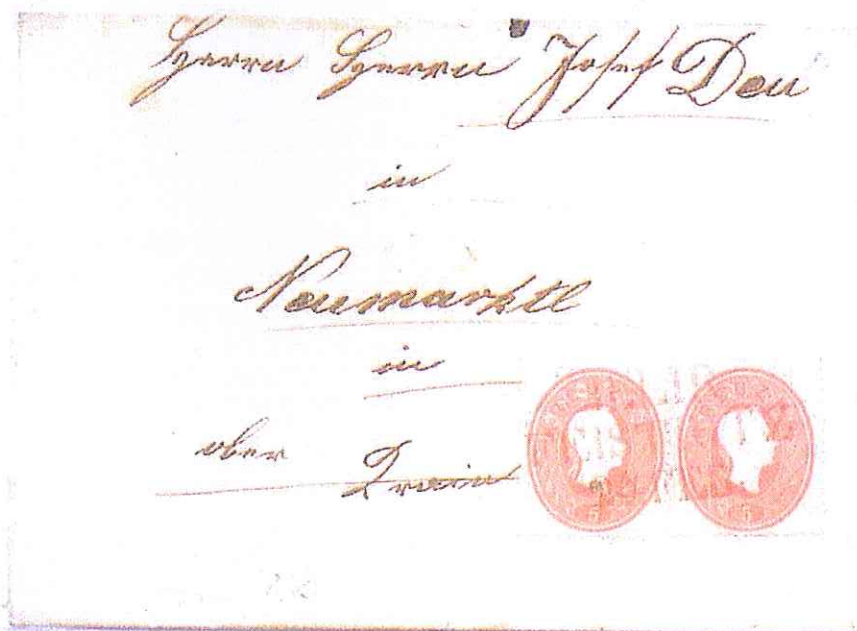 Herrn Herrn Josef Deu
in
Neumarktl
in
ober Krain
5 5